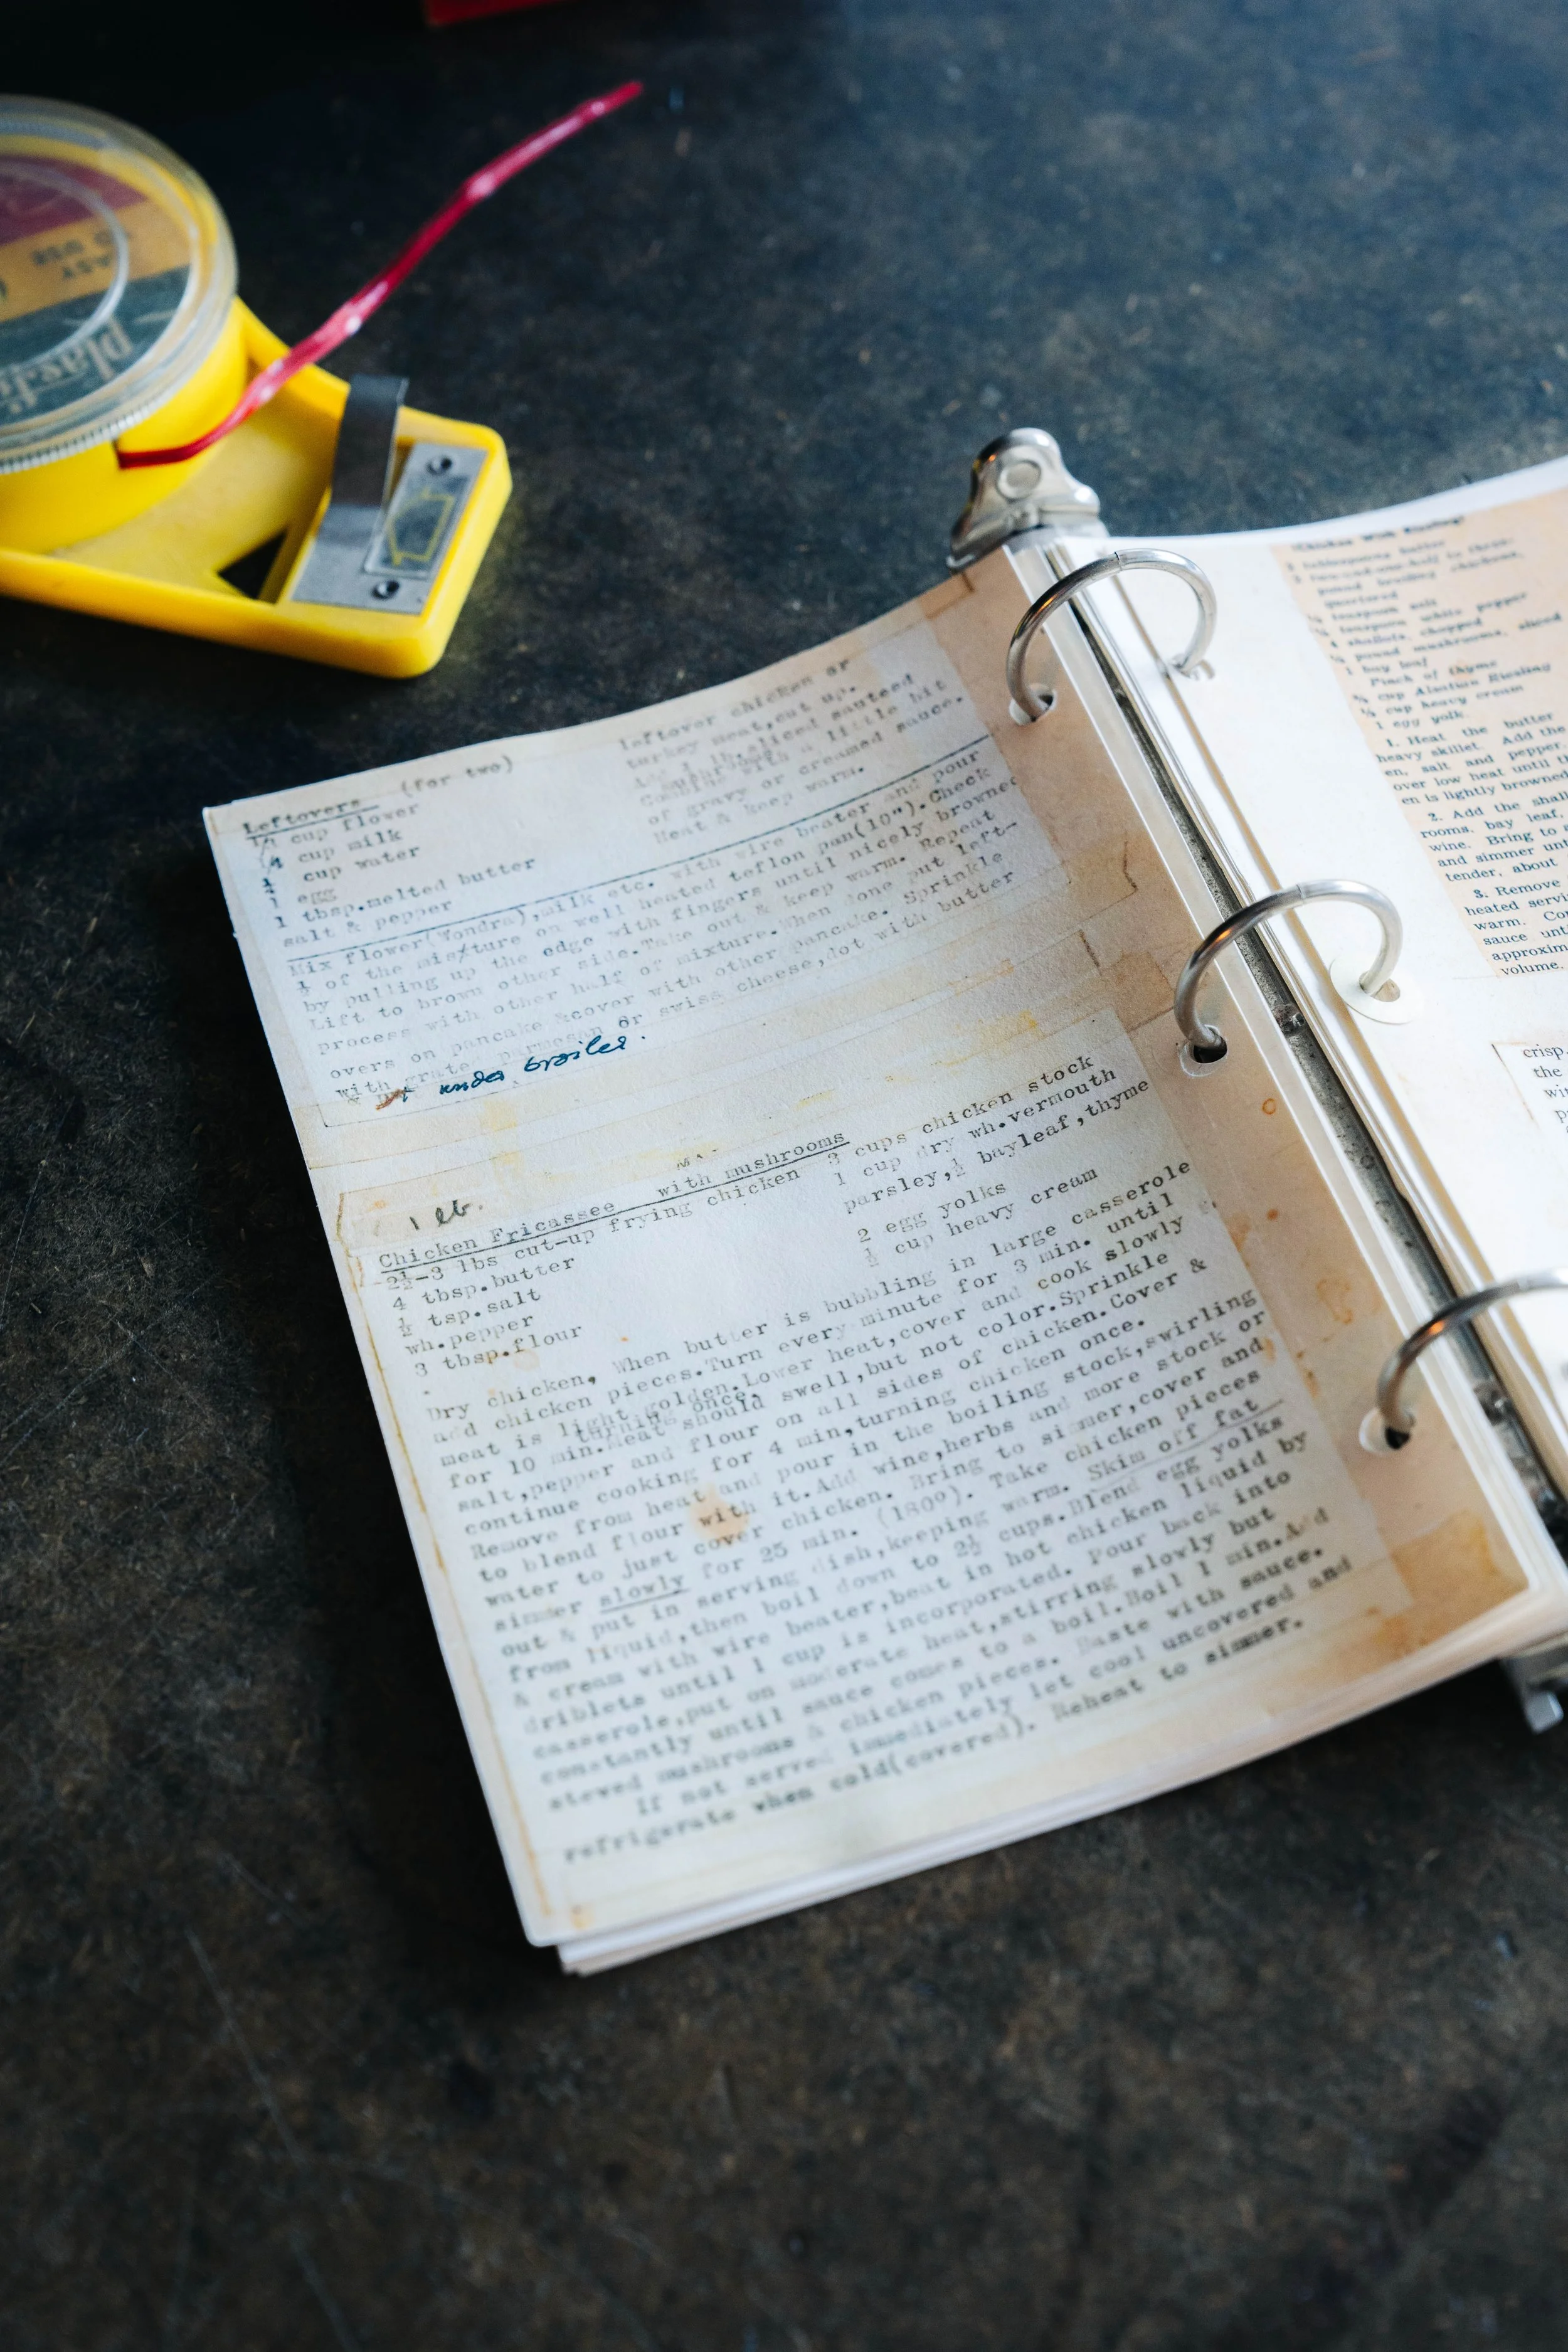 EASY
TO USE
Leftovers (for two)
cup flower
cup milk
cup water
1 egg
1 tbsp.melted butter
salt & pepper
leftover chicken or
turkey meat,cut up.
lb.sliced sauteed
Combine with a little bit
of gravy or creamed sauce.
Heat & keep warm.
Mix flower(Wondra),milk etc. with wire beater and pour
½ of the mixture on well heated teflon pan(10").Check
by pulling up the edge with fingers until nicely browned
Lift to brown other side.Take out & keep warm. Repeat
process with other half of mixture.When done put left-
overs on pancake &cover with other pancake. Sprinkle
with grated parmesan or swiss cheese,dot with butter
& put under broiler.
1 lb.
Chicken Fricassee with mushrooms
2½-3 lbs cut-up frying chicken
4 tbsp.butter
½ tsp.salt
wh.pepper
3 tbsp.flour
3 cups chicken stock
1 cup dry wh.vermouth
parsley,½ bayleaf,thyme
2 egg yolks
½ cup heavy cream
Dry chicken. When butter is bubbling in large casserole
add chicken pieces.Turn every minute for 3 min. until
meat is light golden.Lower heat,cover and cook slowly
turning once.
for 10 min.Meat should swell,but not color.Sprinkle
salt,pepper and flour on all sides of chicken.Cover &
continue cooking for 4 min,turning chicken once.
Remove from heat and pour in the boiling stock,swirling
to blend flour with it.Add wine,herbs and more stock or
water to just cover chicken. Bring to simmer,cover and
simmer slowly for 25 min. (180º). Take chicken pieces
out & put in serving dish,keeping warm. Skim off fat
from liquid,then boil down to 2½ cups.Blend egg yolks
& cream with wire beater,beat in hot chicken liquid by
driblets until 1 cup is incorporated. Pour back into
casserole,put on moderate heat,stirring slowly but
constantly until sauce comes to a boil.Boil 1 min.Add
stewed mushrooms & chicken pieces. Baste with sauce.
If not served immediately let cool uncovered and
refrigerate when cold(covered). Reheat to simmer.
Chicken With Riesling
tablespoons butter
pound broiling chickens,
quartered
teaspoon salt
teaspoon white pepper
4 shallots, chopped
pound mushrooms, sliced
1 bay leaf
Pinch of thyme
cup Alsatian Riesling
cup heavy cream
1 egg yolk.
1. Heat the butter
heavy skillet. Add the
en, salt and pepper
over low heat until th
en is lightly browned
2. Add the shall
rooms, bay leaf,
wine. Bring to
and simmer unt
tender, about
3. Remove
heated servi
warm. Co
sauce unt
approxim
volume.
crisp.
the
wi